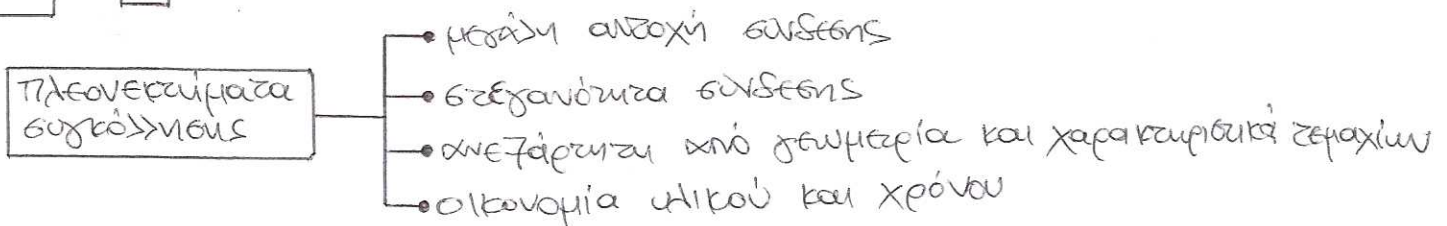 πλεονεκτήματα
συγκόλλησης
μεγάλη αντοχή σύνδεσης
στεγανότητα σύνδεσης
ανεξάρτητη από γεωμετρία και χαρακτηριστικά τεμαχίων
οικονομία υλικού και χρόνου